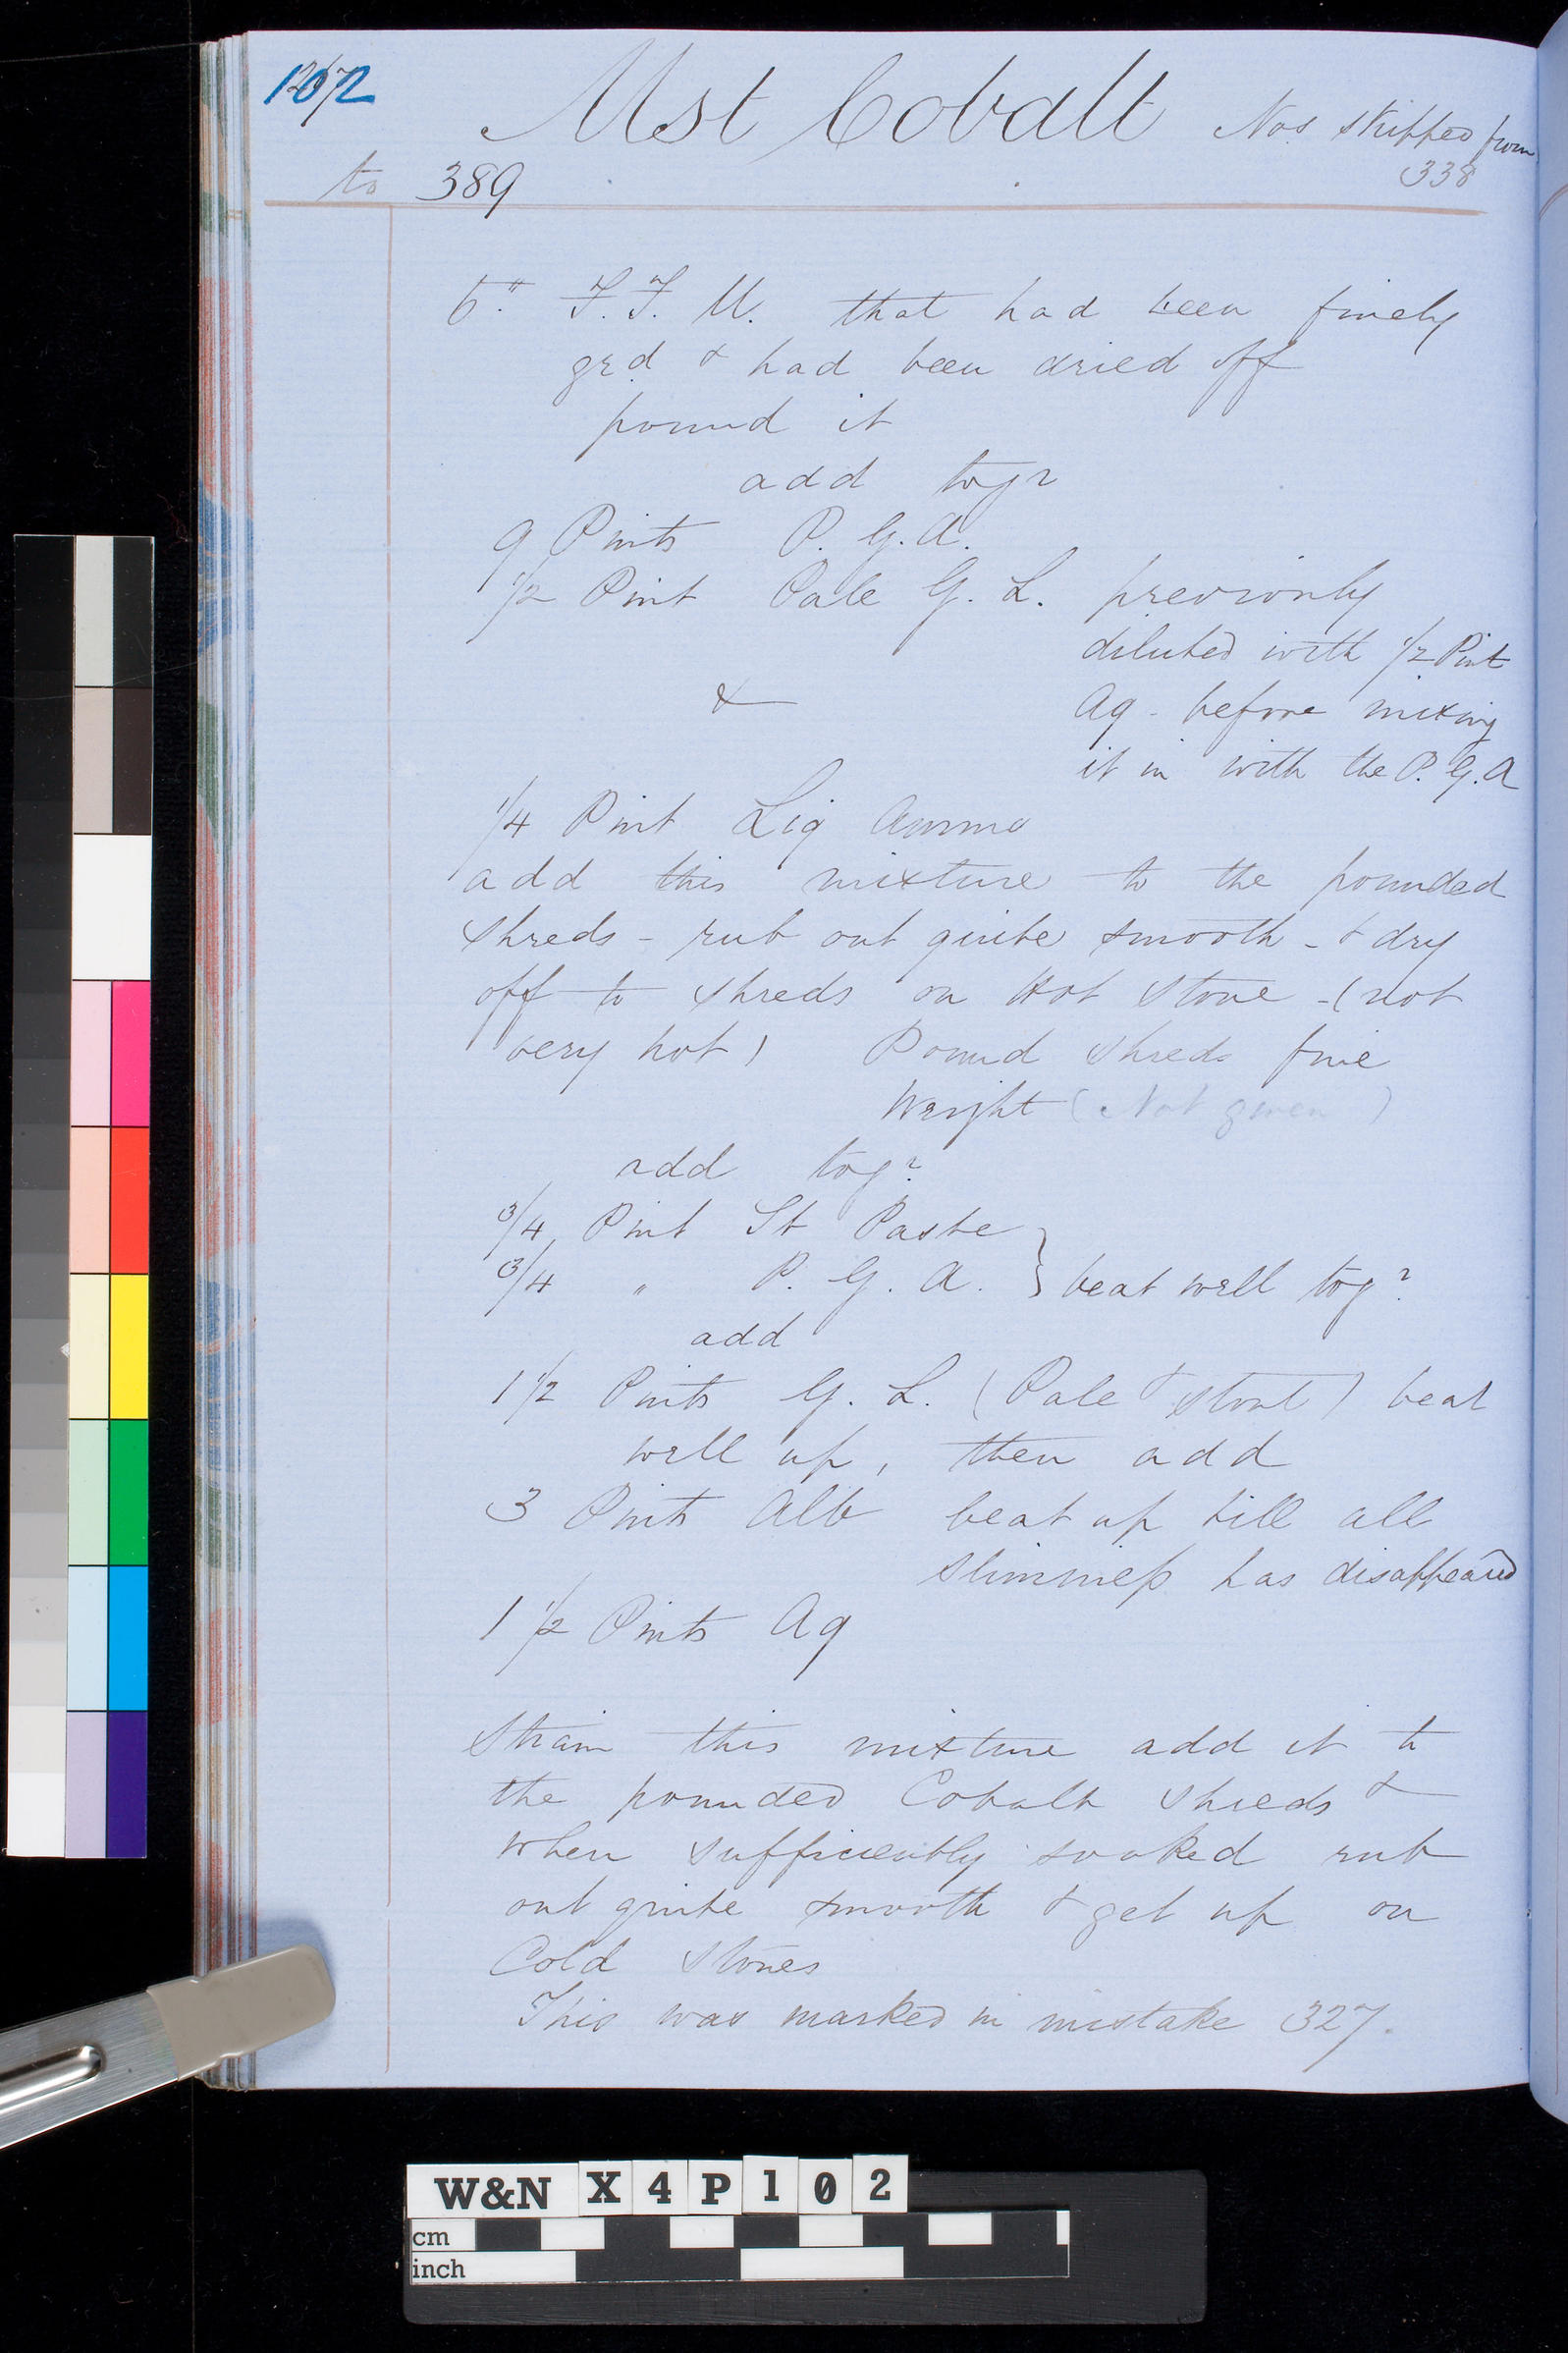 102
Mst Cobalt Nos skipped from
338
to 389
6." F.F. U. that had been finely
grd & had been dried off
pound it
add togr
9 Pints P. G. A.
1/2 Pint Pale G. L. previously
diluted with 1/2 Pint
Aq - before mixing
it in with the P. G. A
&
1/4 Pint Liq Ammo
add this mixture to the pounded
shreds - rub out quite smooth - & dry
off to shreds on Hot Stone - (not
very hot) Pound shreds fine
Weight (Not given)
add togr
3/4 Pint St Paste
3/4 " P. G. A. } beat well togr
add
1 1/2 Pints G. L. (Pale & Stout) beat
well up, then add
3 Pints Alb beat up till all
sliminess has disappeared
1 1/2 Pints Aq
Strain this mixture add it to
the pounded Cobalt shreds &
when sufficiently soaked rub
out quite smooth & get up on
Cold Stones
This was marked in mistake 327.
W&N X4P102
cm
inch